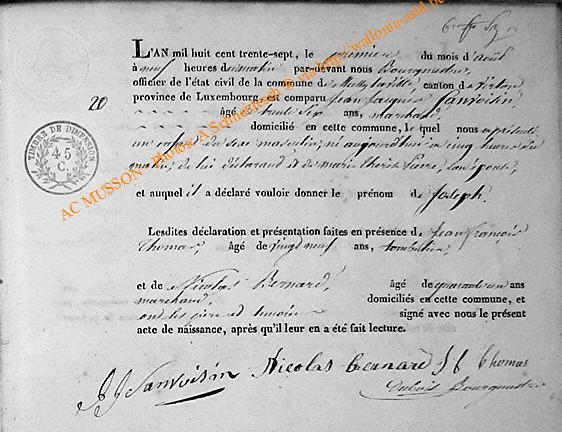 L'AN mil huit cent trente-sept, le premier du mois d'août
à neuf heures du matin par-devant nous Bourgmestre,
officier de l'état civil de la commune de Mussy la ville, canton de Virton
province de Luxembourg, est comparu Jean Jacques Sanvoisin,
âgé de trente six ans, marchand,
domicilié en cette commune, lequel nous a présenté
un enfant du sexe masculin, né aujourd'hui à cinq heures du
matin, de lui déclarant et de Marie Pierre, son épouse,
et auquel il a déclaré vouloir donner le prénom de Joseph.
Lesdites déclaration et présentation faites en présence de Jean François
Thomas, âgé de vingt neuf ans,
et de Nicolas Bernard, âgé de quarante un ans
marchand, domiciliés en cette commune, et
ont les père et témoins signé avec nous le présent
acte de naissance, après qu'il leur en a été fait lecture.
JJ Sanvoisin Nicolas Bernard J f Thomas
Bourgmestre
20
TIMBRE DE DIMENSION
45
C.
AC MUSSON - Photo's A.Schmickrath @ http://wallonia-asd4.be